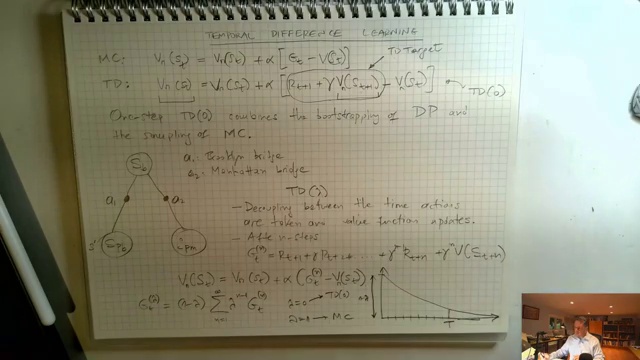 TEMPORAL DIFFERENCE LEARNING
MC: Vπ(St) = Vπ(St) + α [Gt − V(St)]
TD Target
TD: Vπ(St) = Vπ(St) + α [Rt+1 + γ Vπ(St+1) − Vπ(St)] TD(0)
One-step TD(0) combines the bootstrapping of DP and
the sampling of MC.
a1: Brooklyn bridge
a2: Manhattan bridge
a1
a2
s'
TD(λ)
- Decoupling between the time actions
are taken and value function updates.
- After n-steps
Gt(n) = Rt+1 + γ Rt+2 + ... + γ^n-1 Rt+n + γ^n V(St+n)
Vπ(St) = Vπ(St) + α (Gt(λ) − Vπ(St))
Gt(λ) = (1-λ) Σ λ^n-1 Gt(n)
λ=0 → TD(0)
λ=1 → MC
1-λ
T